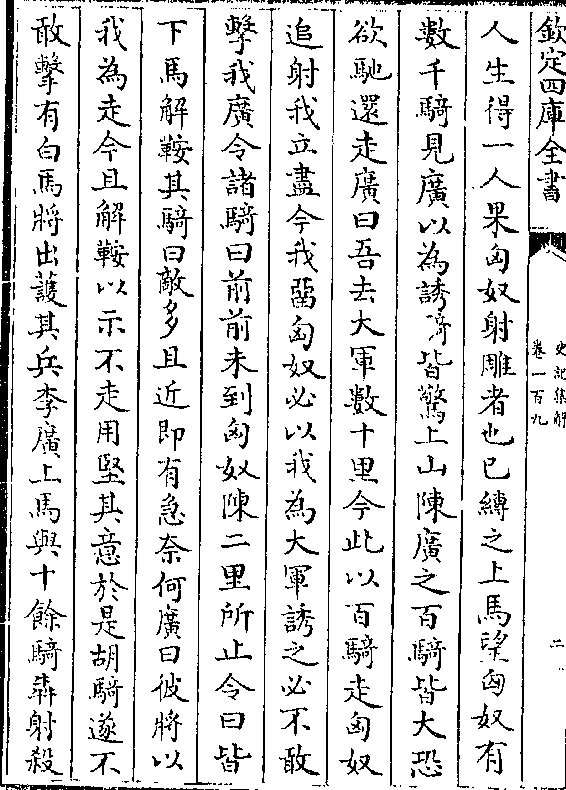 欽定四庫全書
史記集解
卷一百九
二
人生得一人果匈奴射雕者也已縛之上馬望匈奴有
數千騎見廣以為誘騎皆驚上山陳廣之百騎皆大恐
欲馳還走廣曰吾去大軍數十里今此以百騎走匈奴
追射我立盡今我留匈奴必以我為大軍誘之必不敢
擊我廣令諸騎曰前前未到匈奴陳二里所止令曰皆
下馬解鞍其騎曰敵多且近即有急奈何廣曰彼將以
我為走今且解鞍以示不走用堅其意於是胡騎遂不
敢擊有白馬將出護其兵李廣上馬與十餘騎犇射殺